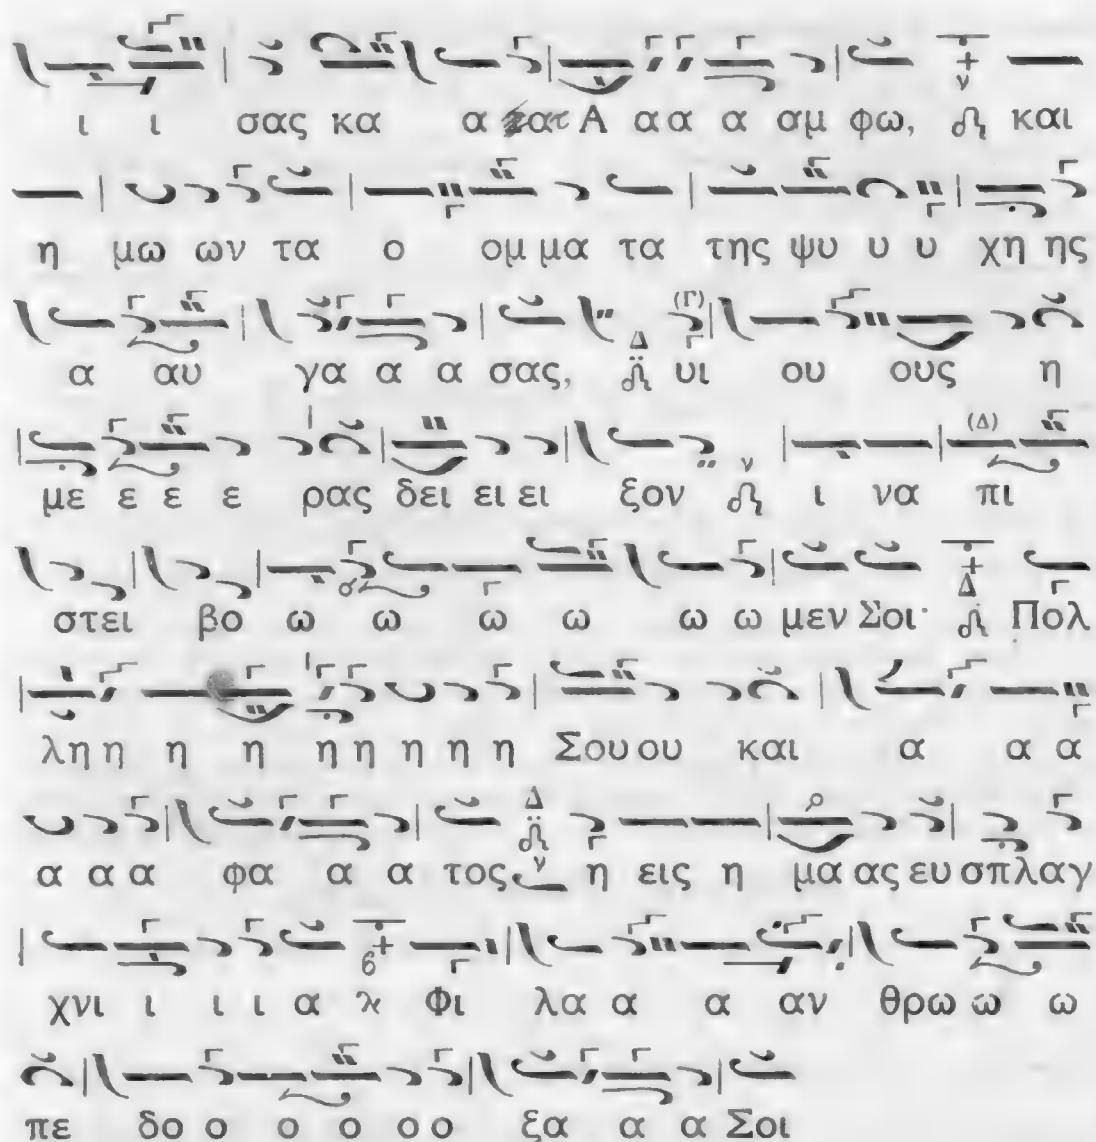 ι ι σας κα α Α αα α αμ φω, και
η μω ων τα ο ομ μα τα της ψυ υ υ χη ης
α αυ γα α α σας, υι ου ους η
με ε ε ε ρας δει ει ει ξον ι να πι
στει βο ω ω ω ω ω ω μεν Σοι· Πολ
λη η η η η η η η η Σου ου και α α α
α α α φα α α τος η εις η μα ας ευ σπλαγ
χνι ι ι ι α Φι λα α α αν θρω ω ω
πε δο ο ο ο ο ο ξα α α Σοι